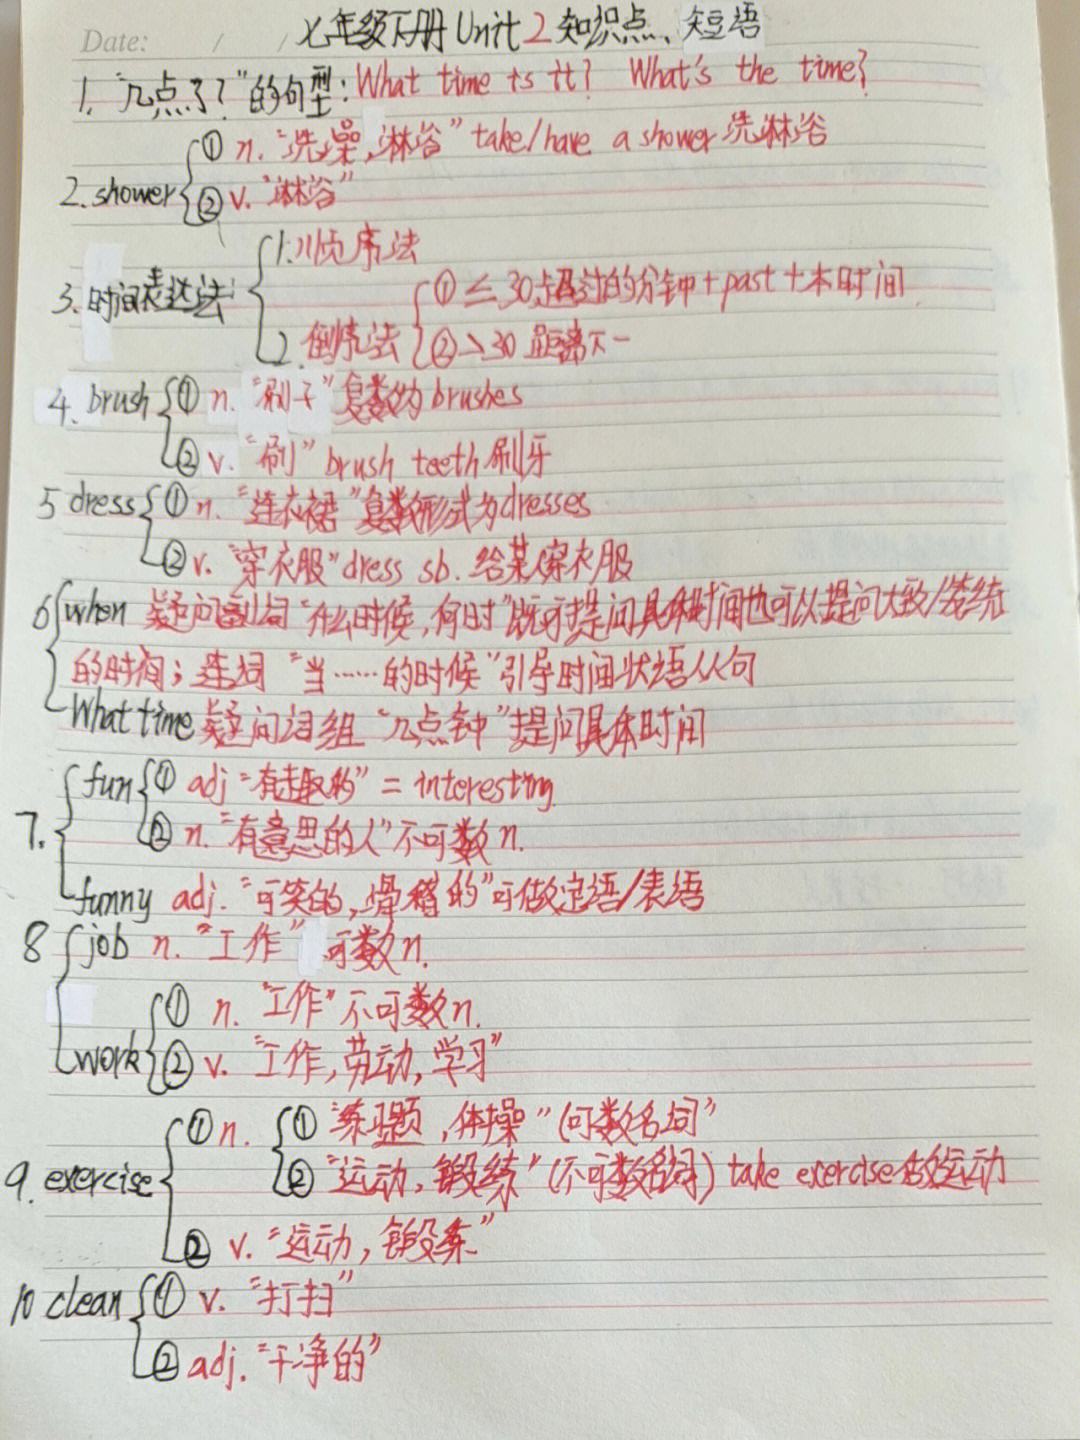 Date: / / 七年级下册 Unit 2 知识点、短语
1. "几点了?"的句型: What time is it? What's the time?
① n. "洗澡,淋浴" take/have a shower 洗淋浴
2. shower
② v. "淋浴"
1. 顺序法
3. 时间表达法
① ≤30 超过的分钟+past+本时间
2. 倒序法 ② >30 距离下一
4. brush ① n. "刷子"复数为 brushes
② v. "刷" brush teeth 刷牙
5 dress ① n. "连衣裙"复数形式为 dresses
② v. "穿衣服" dress sb. 给某人穿衣服
6 when 疑问副词 "什么时候,何时"既可提问具体时间也可以提问大致/笼统
的时间; 连词 "当……的时候"引导时间状语从句
What time 疑问词组 "几点钟"提问具体时间
fun ① adj "有趣的" = interesting
7.
② n. "有意思的人"不可数 n.
funny adj. "可笑的,滑稽的"可做定语/表语
8 job n. "工作" 可数 n.
① n. "工作"不可数 n.
work ② v. "工作,劳动,学习"
① n. ① "练习题,体操"(可数名词)
9. exercise ② "运动,锻练"(不可数名词) take exercise 做运动
② v. "运动,锻练"
10 clean ① v. "打扫"
② adj. "干净的"